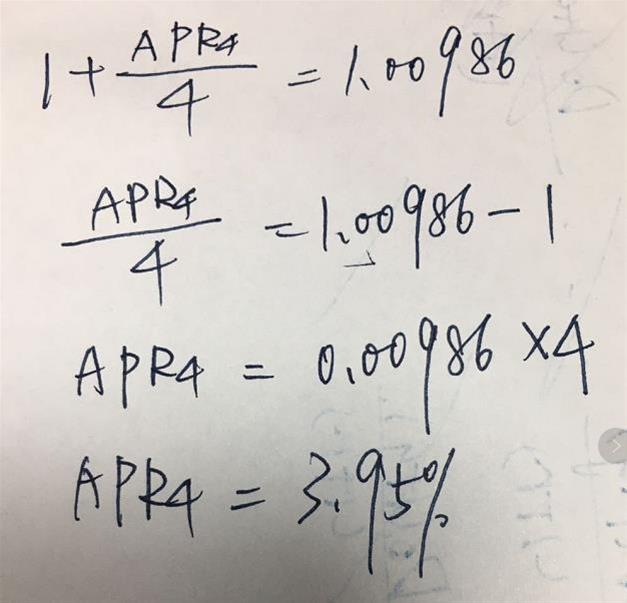 1 + APR4/4 = 1.00986
APR4/4 = 1.00986 - 1
APR4 = 0.00986 × 4
APR4 = 3.95%